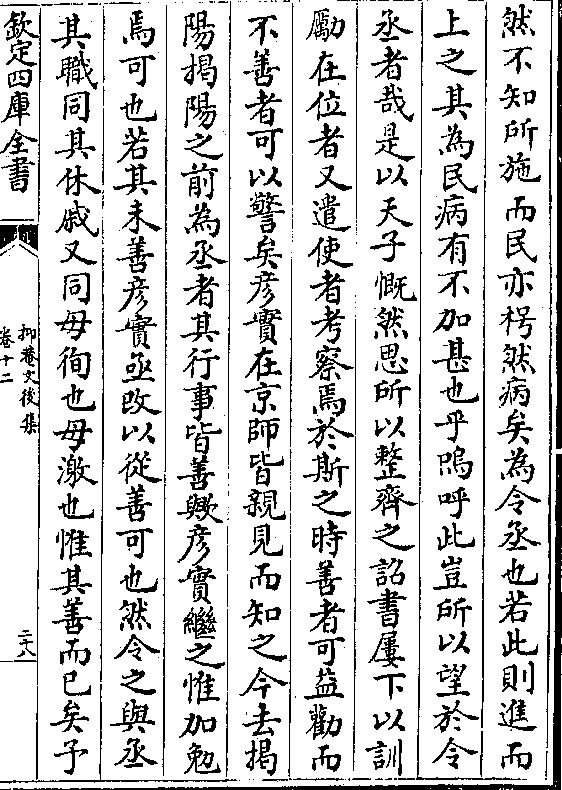 然不知所施而民亦枵然病矣為令丞也若此則進而
上之其為民病有不加甚也乎嗚呼此豈所以望於令
丞者哉是以天子慨然思所以整齊之詔書屢下以訓
勵在位者又遣使者考察焉於斯之時善者可益勸而
不善者可以警矣彦實在京師皆親見而知之今去揭
陽揭陽之前為丞者其行事皆善歟彦實繼之惟加勉
焉可也若其未善彦實亟改以從善可也然令之與丞
其職同其休戚又同毋徇也毋激也惟其善而已矣予
欽定四庫全書
抑菴文後集
卷十二
二十八